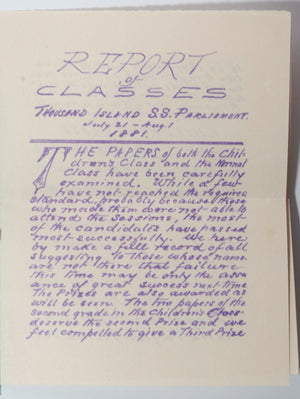 REPORT
of
CLASSES
THOUSAND ISLAND S.S. PARLIAMENT.
July 21 - Aug. 1
1881.
THE PAPERS of both the Chil-
dren's Class and the Normal
Class have been carefully
examined. While a few
have not reached the required
standard, probably because those
who made them were not able to
attend the sessions, the most
of the candidates have passed
most successfully. We here-
by make a full record of all
suggesting to those whose names
are not there that failure
this time may be only the assur-
ance of great success next time
The Prizes are also awarded as
will be seen. The two papers of the
second grade in the Children's Class
deserve the second Prize and we
feel compelled to give a Third Prize